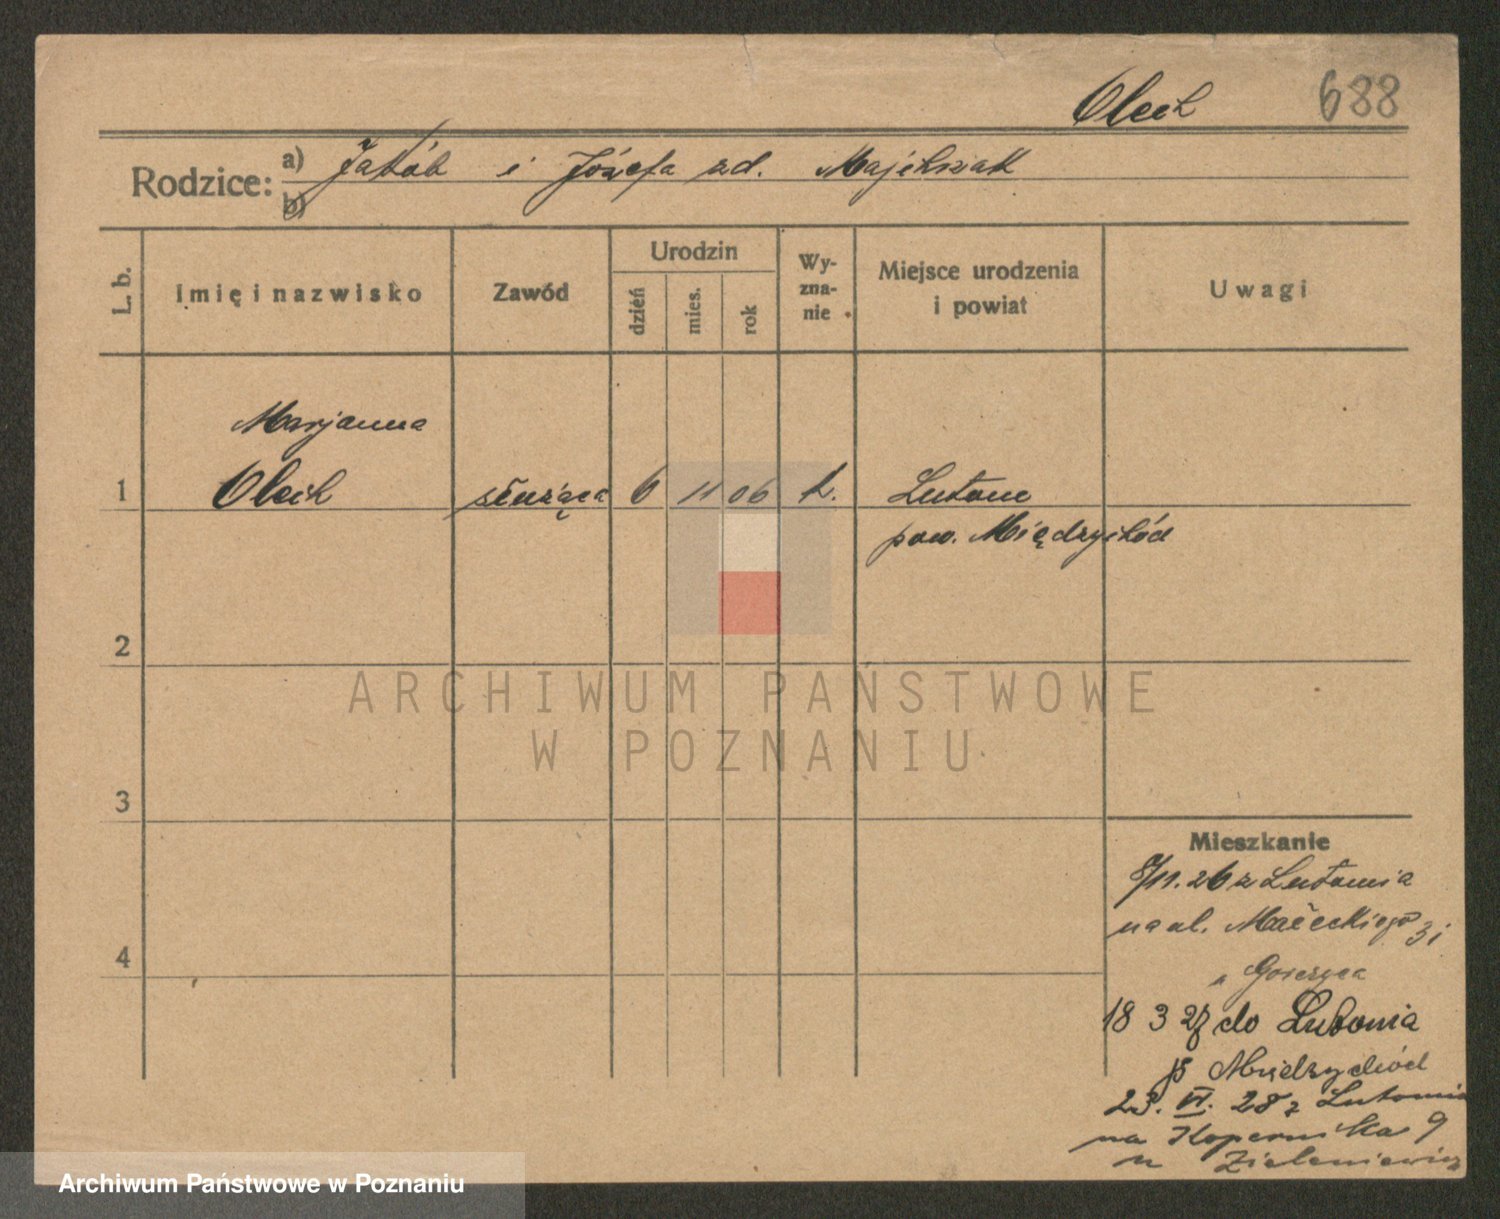 Olech 688
Rodzice: a) Jakób i Józefa zd. Majchrzak
b)
L. b.
Imię i nazwisko
Zawód
Urodzin
dzień
mies.
rok
Wy-
zna-
nie
Miejsce urodzenia
i powiat
Uwagi
Marjanna
1 Olech służąca 6 11 06 k. Lutom
pow. Międzychód
2
3
4
Mieszkanie
8/11. 26 z Lutomia
na ul. Małeckiego 31
18 3 27 do Lutomia
p Międzychód
23. VI. 28 z Lutomia
na Kopernika 9
u Zieleniewicz
ARCHIWUM PAŃSTWOWE
W POZNANIU
Archiwum Państwowe w Poznaniu